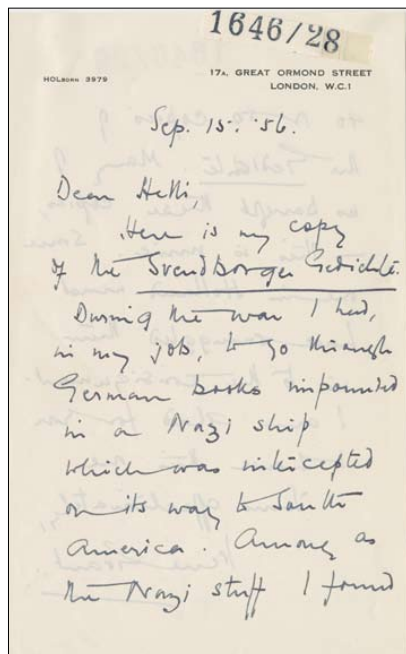 1646/28
HOLBORN 3979
17A, GREAT ORMOND STREET
LONDON, W.C.1
Sep. 15. '56.
Dear Helli,
Here is my copy
of the Svendborger Gedichte.
During the war I had,
in my job, to go through
German books impounded
in a Nazi ship
which was intercepted
on its way to South
America. Among
the Nazi stuff I found